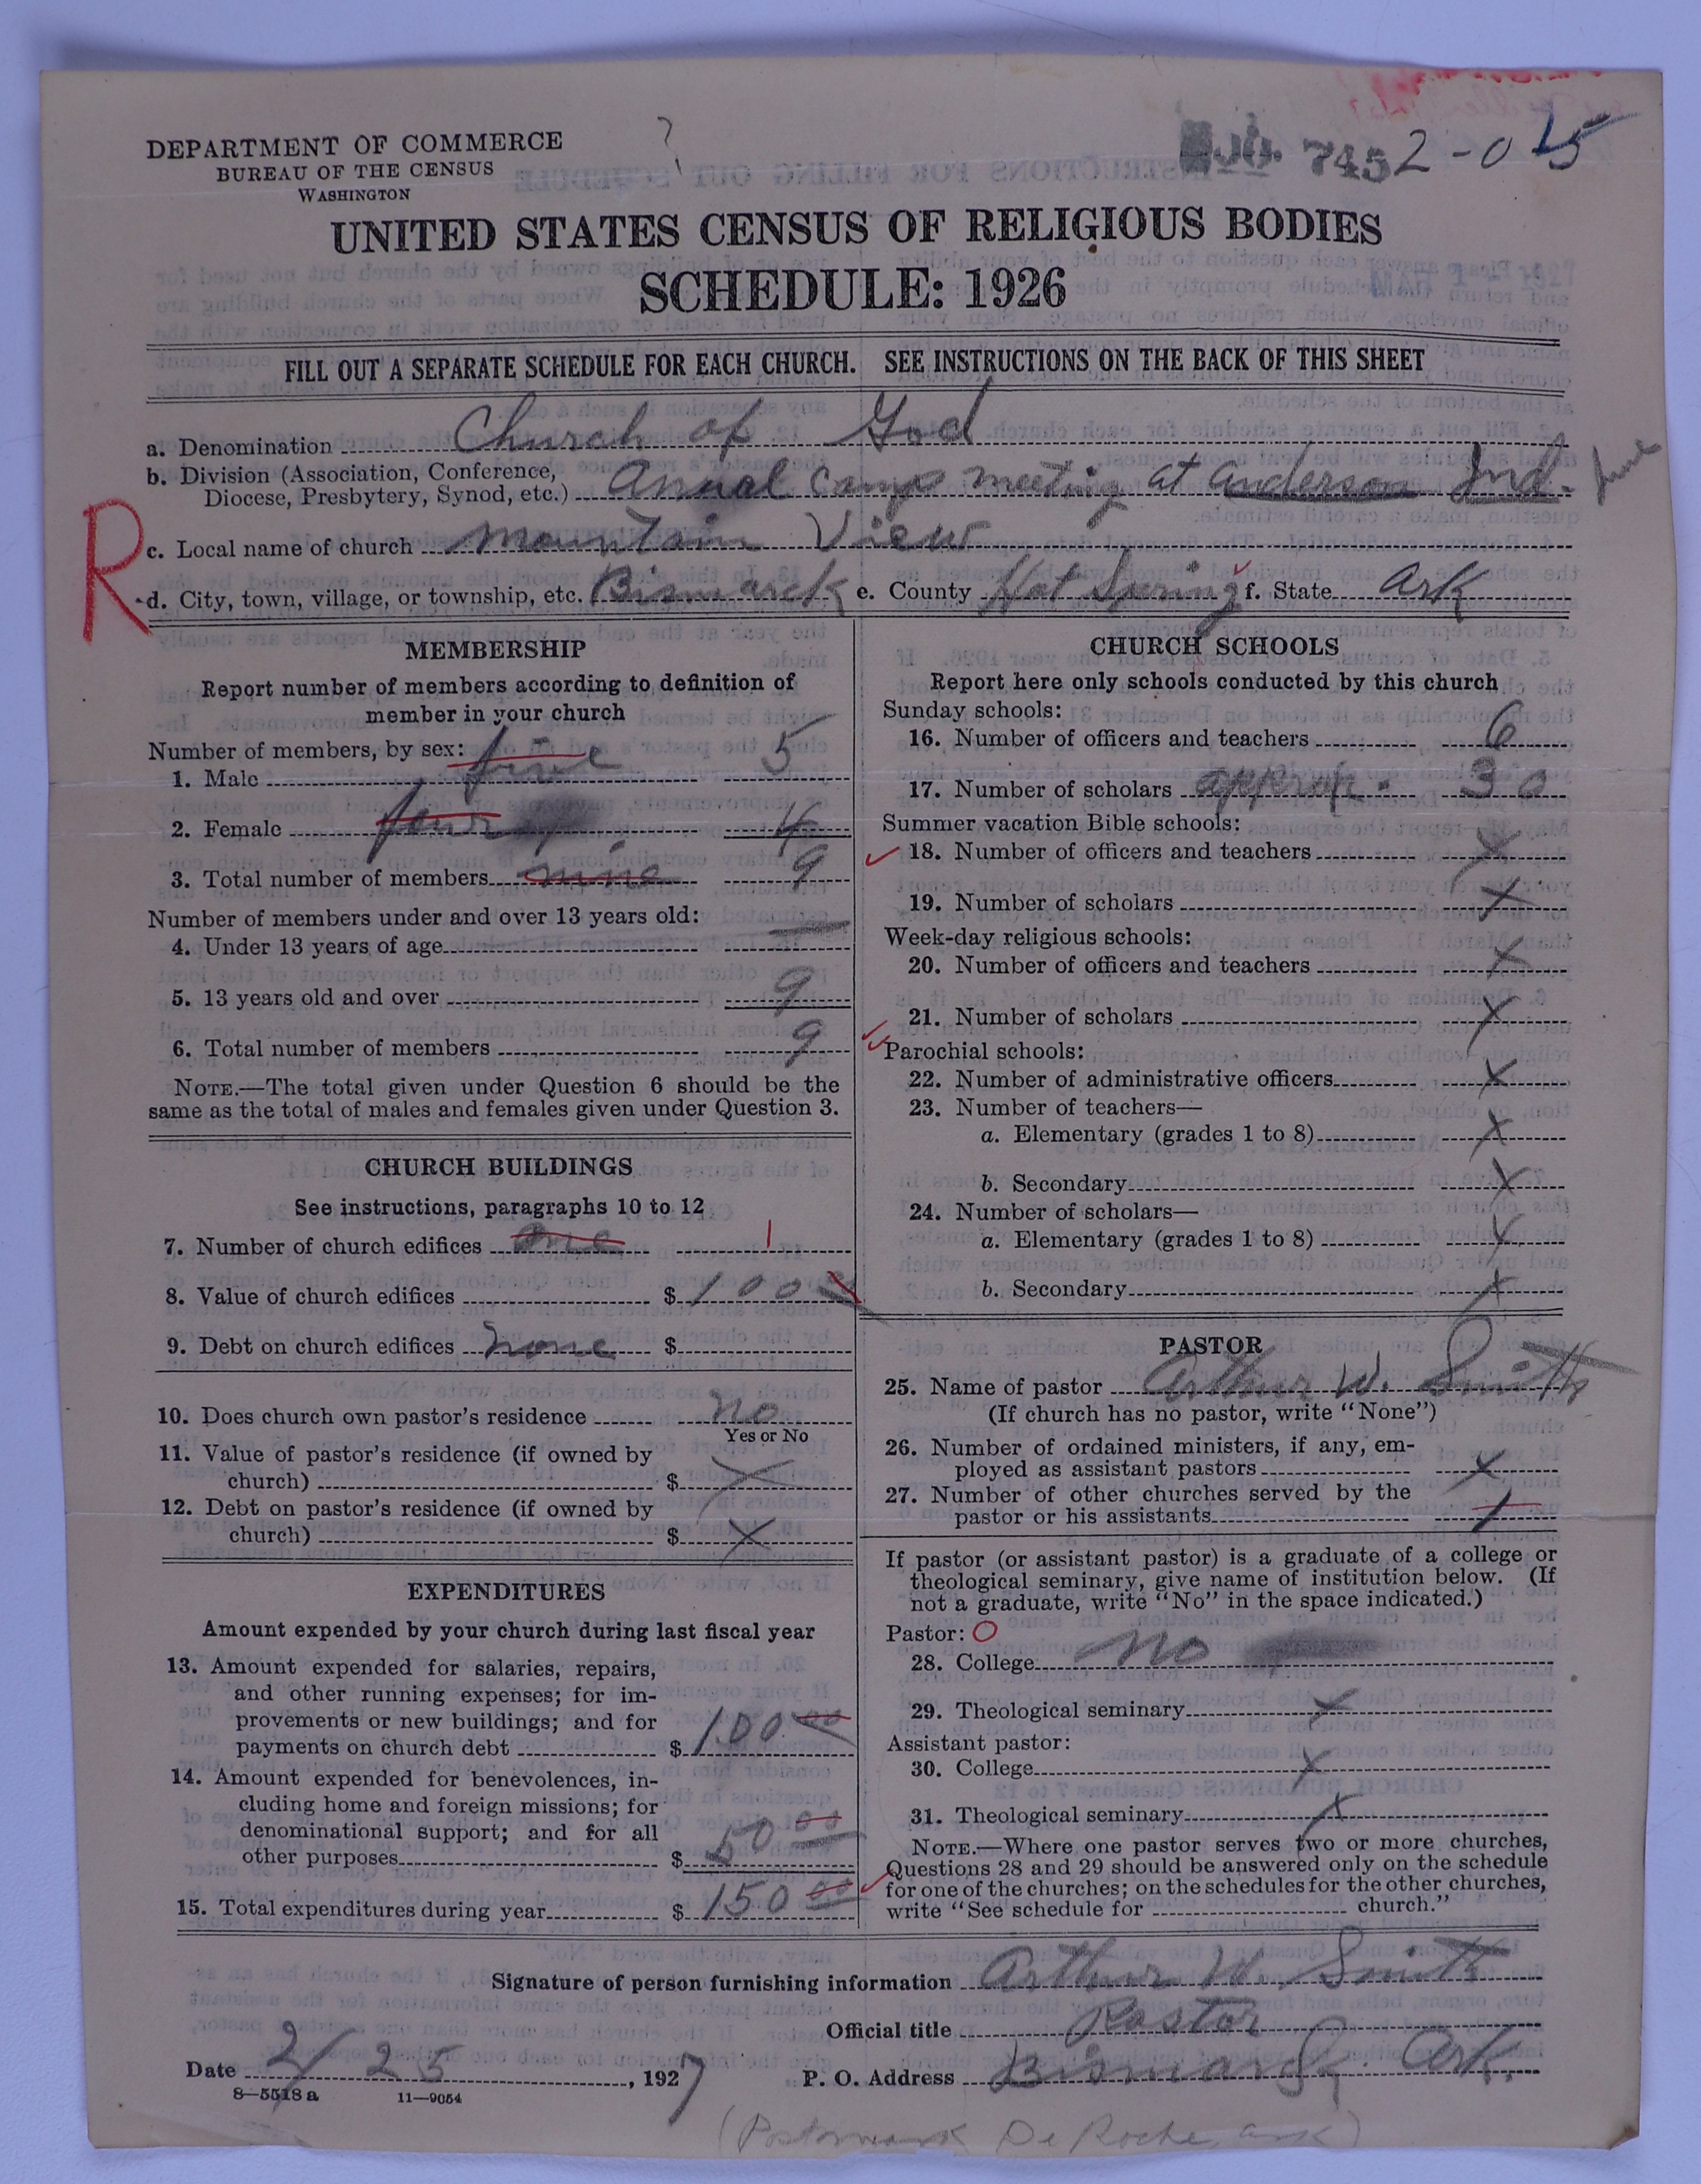 DEPARTMENT OF COMMERCE
BUREAU OF THE CENSUS
WASHINGTON
7452-015
UNITED STATES CENSUS OF RELIGIOUS BODIES
SCHEDULE: 1926
FILL OUT A SEPARATE SCHEDULE FOR EACH CHURCH. SEE INSTRUCTIONS ON THE BACK OF THIS SHEET
a. Denomination Church of God
b. Division (Association, Conference,
Diocese, Presbytery, Synod, etc.) Annual Camp meeting at Anderson Ind. June
R
c. Local name of church Mountain View
d. City, town, village, or township, etc. Bismarck e. County Hot Spring f. State Ark
MEMBERSHIP
Report number of members according to definition of
member in your church
Number of members, by sex:
1. Male five 5
2. Female four 4
3. Total number of members nine 9
Number of members under and over 13 years old:
4. Under 13 years of age —
5. 13 years old and over 9
6. Total number of members 9
NOTE.—The total given under Question 6 should be the
same as the total of males and females given under Question 3.
CHURCH BUILDINGS
See instructions, paragraphs 10 to 12
7. Number of church edifices one 1
8. Value of church edifices $ 100
9. Debt on church edifices none $
10. Does church own pastor's residence no
Yes or No
11. Value of pastor's residence (if owned by
church) $ X
12. Debt on pastor's residence (if owned by
church) $ X
EXPENDITURES
Amount expended by your church during last fiscal year
13. Amount expended for salaries, repairs,
and other running expenses; for im-
provements or new buildings; and for
payments on church debt $ 100 00
14. Amount expended for benevolences, in-
cluding home and foreign missions; for
denominational support; and for all
other purposes $ 50 00
15. Total expenditures during year $ 150 00
CHURCH SCHOOLS
Report here only schools conducted by this church
Sunday schools:
16. Number of officers and teachers 6
17. Number of scholars approx. 30
Summer vacation Bible schools:
18. Number of officers and teachers X
19. Number of scholars X
Week-day religious schools:
20. Number of officers and teachers X
21. Number of scholars X
Parochial schools:
22. Number of administrative officers X
23. Number of teachers—
a. Elementary (grades 1 to 8) X
b. Secondary X
24. Number of scholars—
a. Elementary (grades 1 to 8) X
b. Secondary X
PASTOR
25. Name of pastor Arthur W. Smith
(If church has no pastor, write "None")
26. Number of ordained ministers, if any, em-
ployed as assistant pastors X
27. Number of other churches served by the
pastor or his assistants 1
If pastor (or assistant pastor) is a graduate of a college or
theological seminary, give name of institution below. (If
not a graduate, write "No" in the space indicated.)
Pastor: O
28. College no
29. Theological seminary X
Assistant pastor:
30. College X
31. Theological seminary X
NOTE.—Where one pastor serves two or more churches,
Questions 28 and 29 should be answered only on the schedule
for one of the churches; on the schedules for the other churches,
write "See schedule for church."
Signature of person furnishing information Arthur W. Smith
Official title Pastor
Date 2/25, 1927 P. O. Address Bismarck Ark.
8—5518 a 11—9054
(Postmark De Roche, Ark)